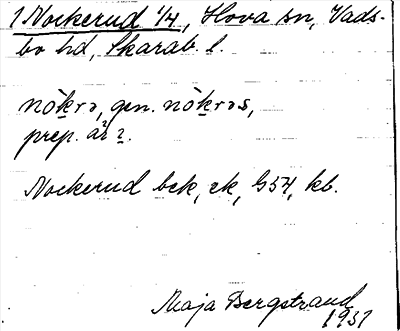 1 Nockerud 1/4, Hova sn, Vads-
bo hd, Skarab. l.
nòkrə, gen. nòkrəs,
prep. 
Nockerud bek, ek, G54, kb.
Maja Bergstrand
1931